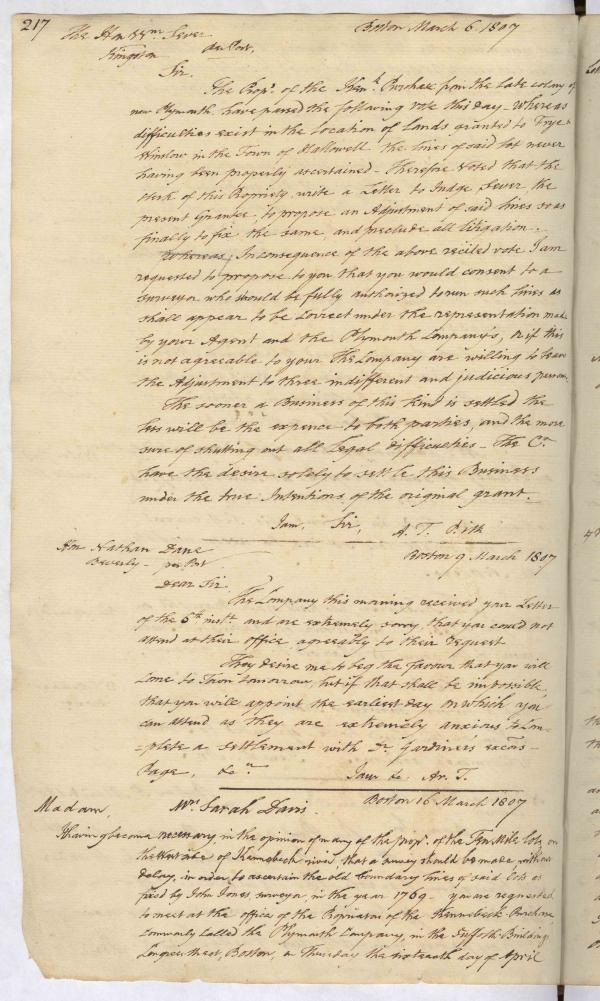 217
The Hon Wm Sever Boston March 6. 1807
Kingston per Post.
Sir.
The Propr. of the Kenk. Purchase from the late colony of
new Plymouth, have passed the following vote this day - Whereas
difficulties exist in the location of Lands granted to
Winslow in the Town of Hallowell the lines of said lot never
having been properly ascertained - Therefore Voted that the
Clerk of this Propriety write a Letter to Judge Sever the
present Grantee, to propose an Adjustment of said lines so as
finally to fix the same, and preclude all litigation.
Whereas, In consequence of the above recited vote I am
requested to propose to you that you would consent to a
surveyor who should be fully authorized to run such lines as
shall appear to be correct under the representation made
by your Agent and the Plymouth Company's, or if this
is not agreeable to your The Company are willing to leave
the Adjustment to three indifferent and judicious persons.
The sooner a Business of this kind is settled the
less will be the expence to both parties, and the more
sure of shutting out all Legal difficulties - The Co.
have the desire solely to settle this Business
under the true Intentions, of the original grant.
I am, Sir, A. T. Clk
Hon Nathan Dane Boston 9 March 1807
Beverly - per Post
Dear Sir
The Company this morning received your Letter
of the 5th inst. and are extremely sorry that you could not
attend at their office agreeably to their request
They desire me to beg the favour that you will
come to Town tomorrow, but if that shall be impossible,
that you will appoint the earliest day on which you
can attend as they are extremely anxious to Com-
-plete a settlement with Dr. Gardiners excors -
&c. I am &c. Ar. T.
Madam, Mrs Sarah Davis. Boston 16 March 1807
Having become necessary, in the opinion of many of the propr. of the Ten Mile lots, on
the West side of Kennebeck river, that a survey should be made without
delay, in order to ascertain the old boundary lines of said lots as
fixed by John Jones, surveyor, in the year 1769 - you are requested
to meet at the office of the Proprietors of the Kennebeck Purchase
commonly called the Plymouth Company, in the Suffolk Buildings
Congress street, Boston, on Thursday the sixteenth day of April